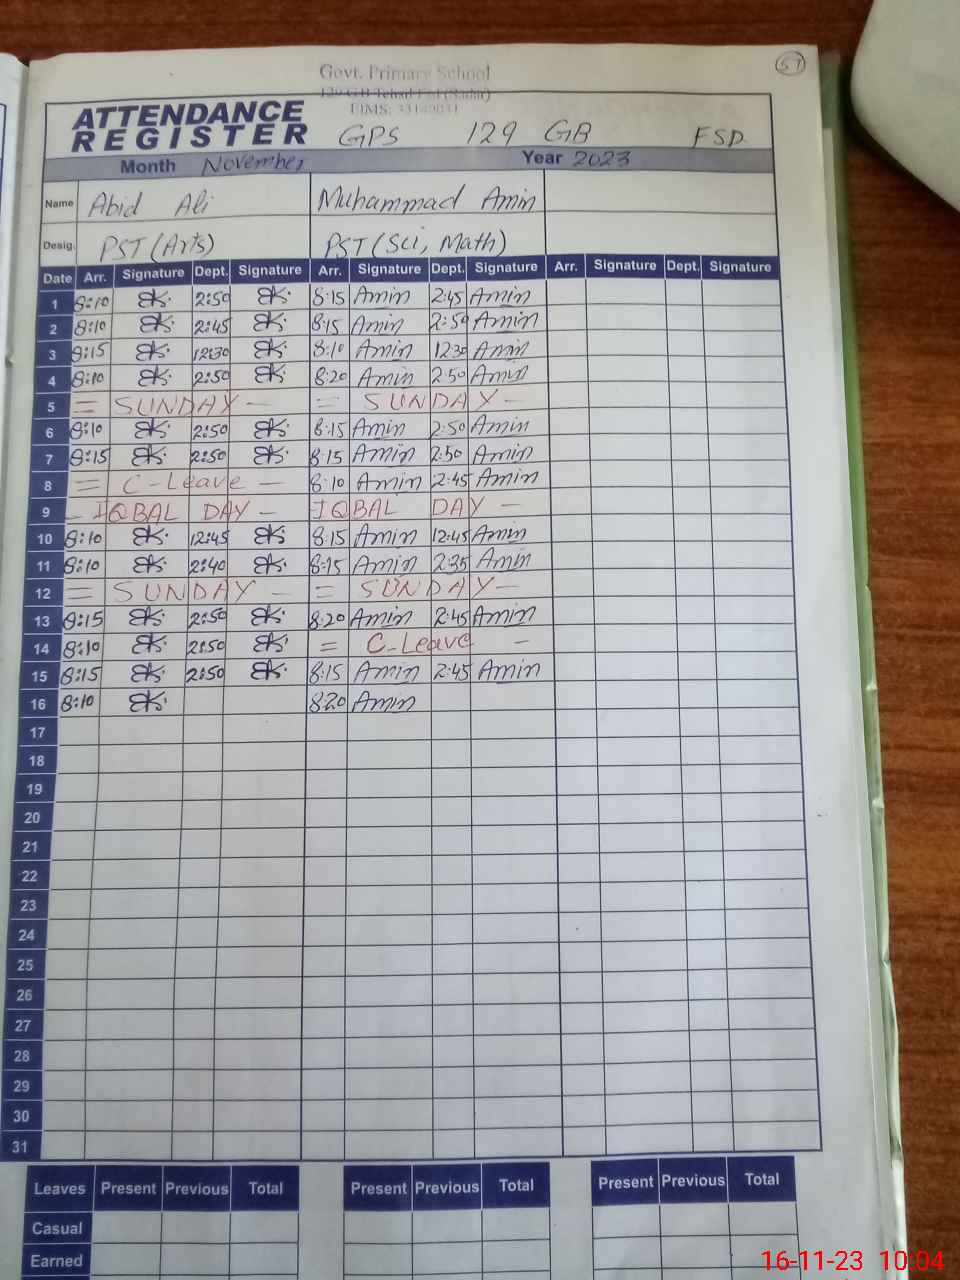 57
Govt. Primary School
129 G.B Tehsil Fsd (Sadar)
EIMS: 33140031
ATTENDANCE
REGISTER GPS 129 GB FSD.
Month November Year 2023
Name Abid Ali Muhammad Amin
Desig. PST (Arts) PST (Sci, Math)
Date Arr. Signature Dept. Signature Arr. Signature Dept. Signature Arr. Signature Dept. Signature
1 8:10 2:50 8:15 Amin 2:45 Amin
2 8:10 2:45 8:15 Amin 2:50 Amin
3 8:15 12:30 8:10 Amin 12:30 Amin
4 8:10 2:50 8:20 Amin 2:50 Amin
5 = SUNDAY - = SUNDAY -
6 8:10 2:50 8:15 Amin 2:50 Amin
7 8:15 2:50 8:15 Amin 2:50 Amin
8 = C-Leave - 8:10 Amin 2:45 Amin
9 - IQBAL DAY - IQBAL DAY -
10 8:10 12:45 8:15 Amin 12:45 Amin
11 8:10 2:40 8:15 Amin 2:35 Amin
12 = SUNDAY - = SUNDAY -
13 8:15 2:50 8:20 Amin 2:45 Amin
14 8:10 2:50 = C-Leave -
15 8:15 2:50 8:15 Amin 2:45 Amin
16 8:10 8:20 Amin
17
18
19
20
21
22
23
24
25
26
27
28
29
30
31
Leaves Present Previous Total Present Previous Total Present Previous Total
Casual
Earned
16-11-23 10:04